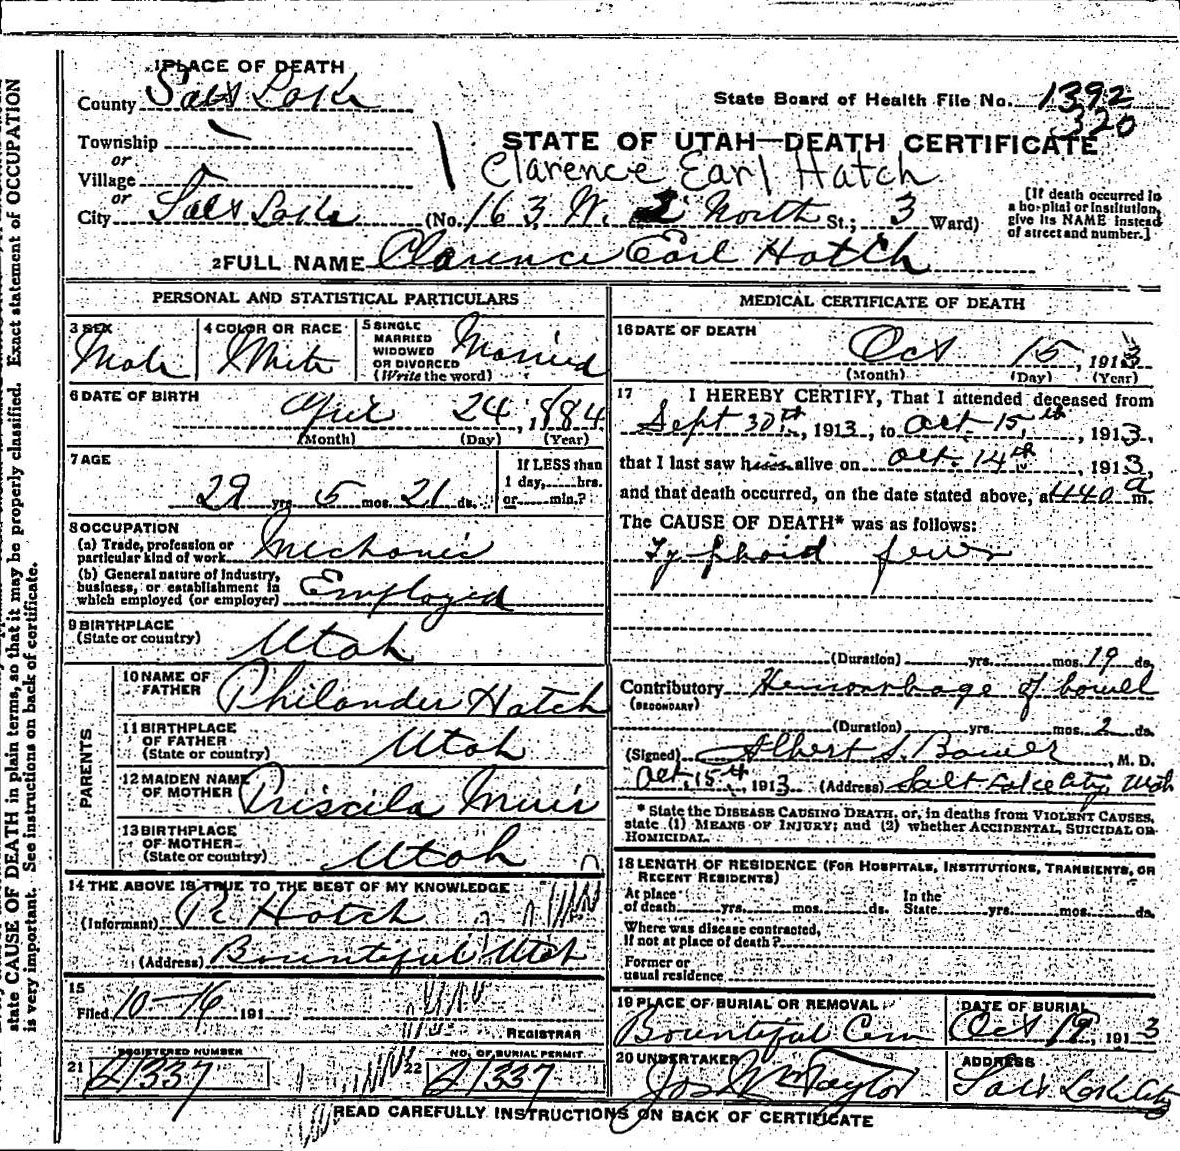 1 PLACE OF DEATH
County Salt Lake
State Board of Health File No. 1392
320
Township
or
Village
or
STATE OF UTAH—DEATH CERTIFICATE
Clarence Earl Hatch
City Salt Lake (No. 163 W. 2 North St.; 3 Ward)
[If death occurred in
a hospital or institution,
give its NAME instead
of street and number.]
2 FULL NAME Clarence Earl Hatch
PERSONAL AND STATISTICAL PARTICULARS
3 SEX
Male
4 COLOR OR RACE
White
5 SINGLE
MARRIED
WIDOWED
OR DIVORCED
(Write the word)
Married
6 DATE OF BIRTH
April 24, 1884
(Month) (Day) (Year)
7 AGE
29 yrs. 5 mos. 21 ds.
If LESS than
1 day, hrs.
or min.?
8 OCCUPATION
(a) Trade, profession or
particular kind of work Mechanic
(b) General nature of industry,
business, or establishment in
which employed (or employer) Employed
9 BIRTHPLACE
(State or country) Utah
PARENTS
10 NAME OF
FATHER Philander Hatch
11 BIRTHPLACE
OF FATHER
(State or country) Utah
12 MAIDEN NAME
OF MOTHER Priscila Muir
13 BIRTHPLACE
OF MOTHER
(State or country) Utah
14 THE ABOVE IS TRUE TO THE BEST OF MY KNOWLEDGE
(Informant) P. Hatch
(Address) Bountiful Utah
15
Filed 10-16 191
REGISTRAR
REGISTERED NUMBER
21
NO. OF BURIAL PERMIT
22
MEDICAL CERTIFICATE OF DEATH
16 DATE OF DEATH
Oct 15, 1913
(Month) (Day) (Year)
17 I HEREBY CERTIFY, That I attended deceased from
Sept 30th, 1913, to Oct 15th, 1913,
that I last saw him alive on Oct. 14th, 1913,
and that death occurred, on the date stated above, at 440 a m.
The CAUSE OF DEATH* was as follows:
Typhoid fever
(Duration) yrs. mos. 19 ds.
Contributory Hemorrhage of bowel
(SECONDARY)
(Duration) yrs. mos. 2 ds.
(Signed) Albert S. Bower, M. D.
Oct, 15th, 1913 (Address) Salt Lake City, Utah
* State the DISEASE CAUSING DEATH, or, in deaths from VIOLENT CAUSES,
state (1) MEANS OF INJURY; and (2) whether ACCIDENTAL, SUICIDAL OR
HOMICIDAL.
18 LENGTH OF RESIDENCE (FOR HOSPITALS, INSTITUTIONS, TRANSIENTS, OR
RECENT RESIDENTS)
At place
of death yrs. mos. ds.
In the
State yrs. mos. ds.
Where was disease contracted,
if not at place of death?
Former or
usual residence
19 PLACE OF BURIAL OR REMOVAL
Bountiful Cem
DATE OF BURIAL
Oct 19, 1913
20 UNDERTAKER
Jos Wm Taylor
ADDRESS
Salt Lake City
READ CAREFULLY INSTRUCTIONS ON BACK OF CERTIFICATE
state CAUSE OF DEATH in plain terms, so that it may be properly classified. Exact statement of OCCUPATION
is very important. See instructions on back of certificate.